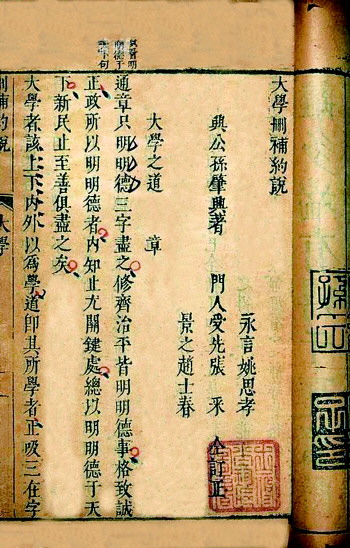 大學刪補約說
永言姚思孝
興公孫肇興著 門人受先張采 仝訂正
景之趙士春
大學之道 章
通章只明明德三字盡之修齊治平皆明明德事格致誠
正政所以明明德者內知止尤關鍵處總以明明德于天
下新民止至善俱盡之矣
大學者該上下內外以為學道即其所學者正吸三在字
大學